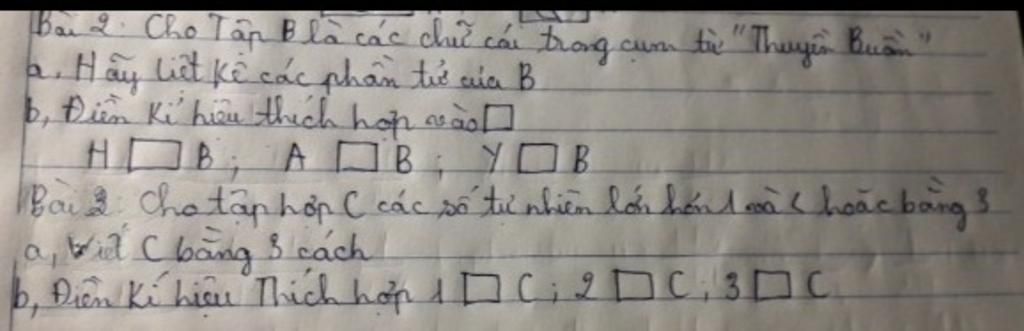 Bài 2: Cho Tập B là các chữ cái trong cụm từ "Thuyền Buồm"
a, Hãy liệt kê các phần tử của B
b, Điền kí hiệu thích hợp vào □
H □ B; A □ B; Y □ B
Bài 3: Cho tập hợp C các số tự nhiên lớn hơn 1 và < hoặc bằng 3
a, viết C bằng 3 cách
b, Điền kí hiệu Thích hợp 1 □ C; 2 □ C; 3 □ C